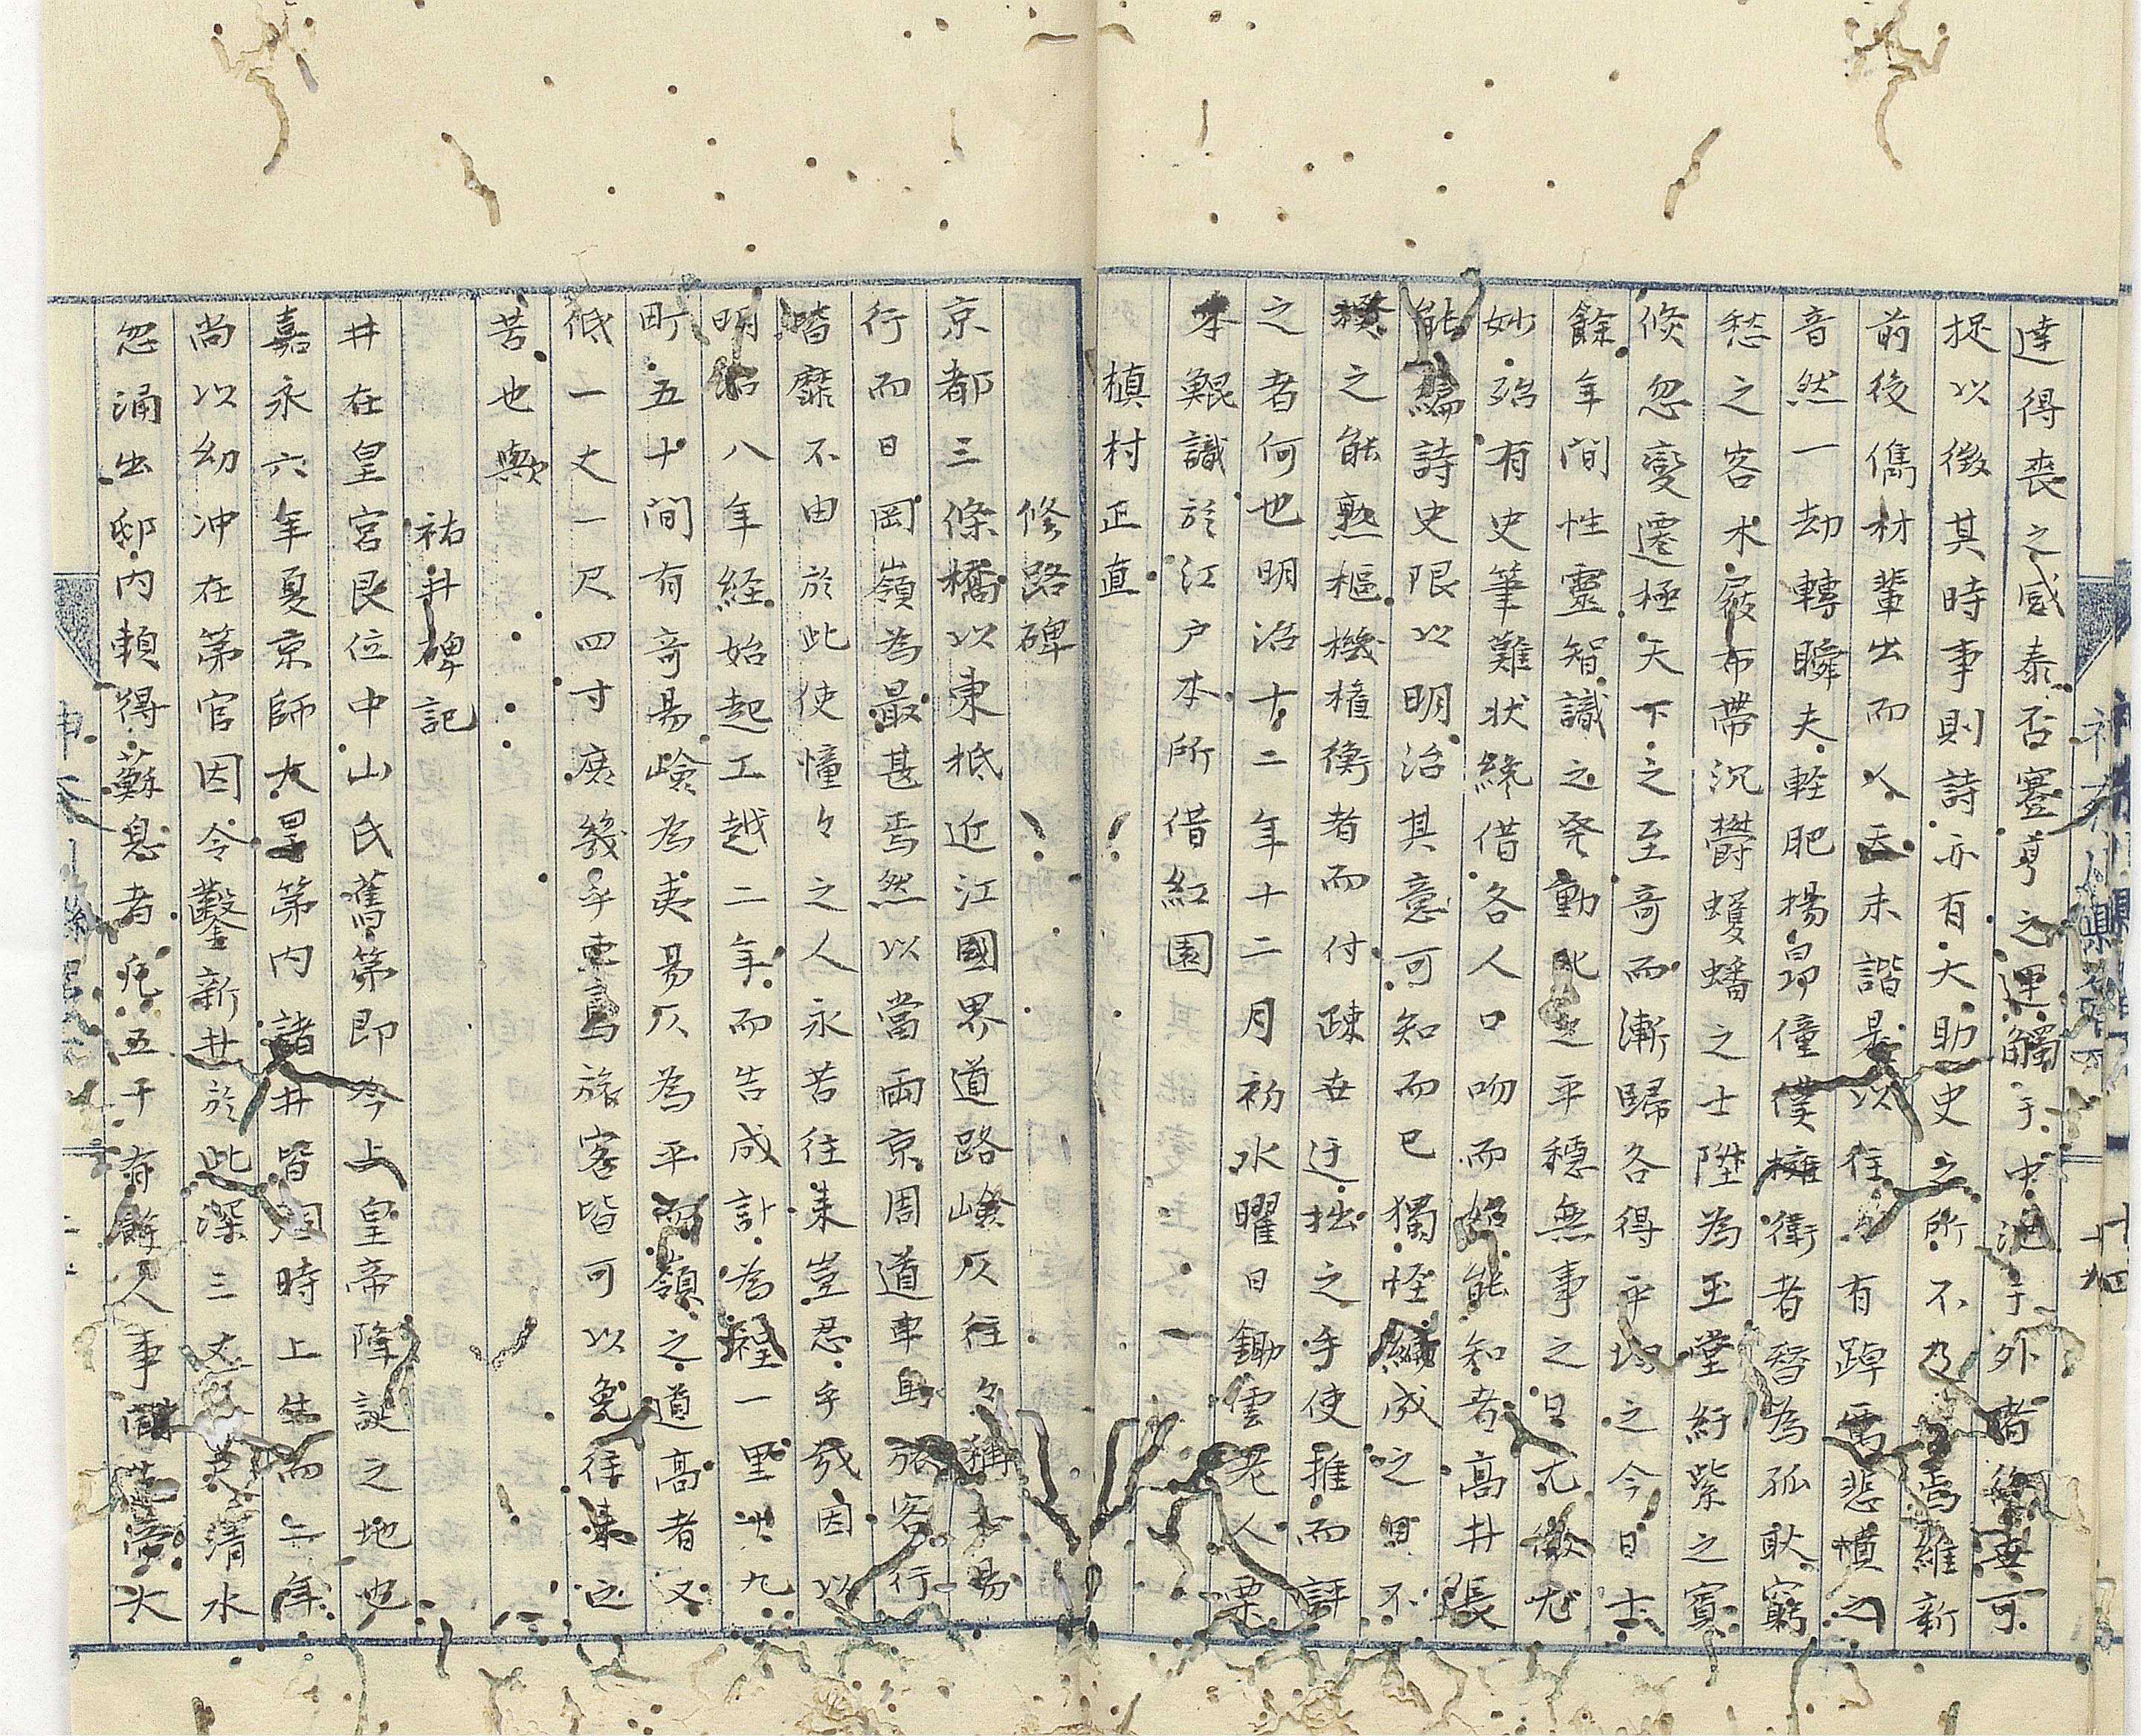 達得喪之感泰否蹇亨之運觸于中池于外者無可
捉以徴其時事則詩亦有大助史之所不及焉維新
前後儁材輩出而人天未諧是以往々有踔厲悲憤之
音然一劫轉瞬夫軽肥揚昴僮僕擁衛者督為孤耿窮
愁之客木屐布帶沉欝蠖蟠之士陞為玉堂紆紫之賓
倐忽變遷極天下之至奇而漸歸各得平均之今日士
餘年間性靈智識之発動比之平穏無事之日尤微尤
妙殆有史筆難状纔借各人口吻而始能知者髙井張
能編詩史限以明治其意可知而已獨怪編成之日不
襍之能熟樞機権衡者而付疎世迂拙之手使推而評
之者何也明治十二年十二月初水曜日鋤雲老人栗
本鯤識於江戸本所借紅園
槙村正直
修路碑
京都三條橋以東抵近江國界道路嶮仄往々稱不易
行而日岡嶺為最甚焉然以當両京周道車馬旅客行
啙靡不由於此使憧々之人永苦往来豈忍乎哉因以
明治八年経始起工越二年而告成計為程一里廿九
町五十間有竒易嶮為夷易仄為平而嶺之道髙者又
低一丈一尺四寸庶幾乎車馬旅客皆可以免往来之
苦也歟
祐井碑記
井在皇宮艮位中山氏舊第即今上皇帝降誕之地也
嘉永六年夏京師大旱第内諸井皆涸時上生而二年
尚以幼冲在第官因令鑿新井於此深三丈 清水
忽涌出邸内頼得蘇息者凢五千有餘人事 大